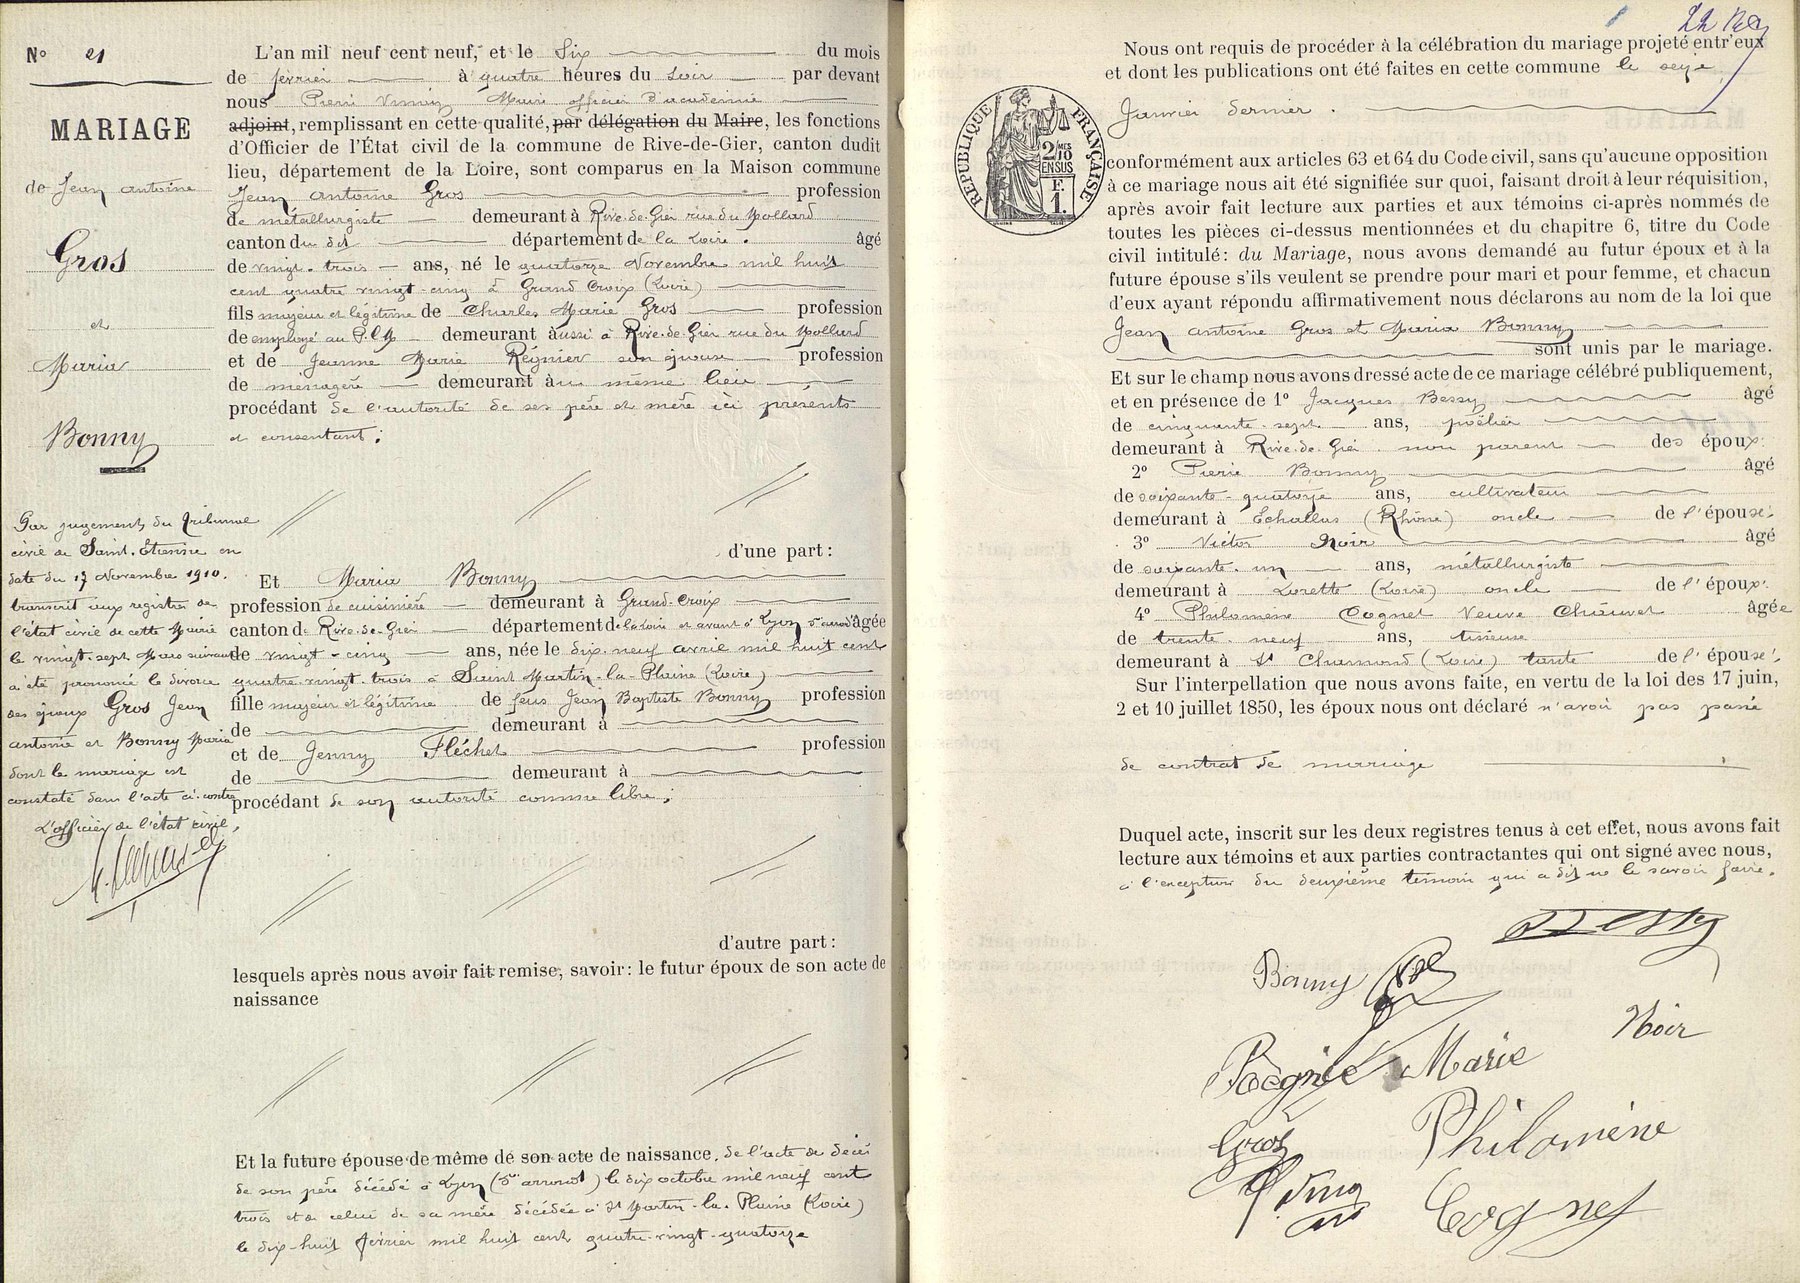 N° 21
MARIAGE
de Jean antoine
Gros
et
Maria
Bonny
Par jugement du Tribunal
civil de Saint-Etienne en
date du 17 Novembre 1910.
transcrit aux registres de
l'état civil de cette Mairie
le vingt-sept Mars suivant
a été prononcé le divorce
des époux Gros Jean
antoine et Bonny Maria
dont le mariage est
constaté dans l'acte ci-contre
L'officier de l'état civil,
L'an mil neuf cent neuf, et le Six du mois
de février à quatre heures du soir par devant
nous Pierre Maire officier d'académie
adjoint, remplissant en cette qualité, par délégation du Maire, les fonctions
d'Officier de l'État civil de la commune de Rive-de-Gier, canton dudit
lieu, département de la Loire, sont comparus en la Maison commune
Jean antoine Gros profession
de métallurgiste demeurant à Rive-de-Gier rue du Mollard
canton du dit département de la Loire. âgé
de vingt-trois ans, né le quatorze Novembre mil huit
cent quatre vingt-cinq à Grand Croix (Loire)
fils majeur et légitime de Charles Marie Gros profession
de employé au P.L.M demeurant aussi à Rive-de-Gier rue du Mollard
et de Jeanne Marie Régnier son épouse profession
de ménagère demeurant au même lieu
procédant de l'autorité de ses père et mère ici présents
et consentant;
d'une part:
Et Maria Bonny
profession de cuisinière demeurant à Grand-Croix
canton de Rive-de-Gier département de la Loire et avant à Lyon 5e arrondt âgée
de vingt-cinq ans, née le dix-neuf avril mil huit cent
quatre-vingt-trois à Saint Martin-la-Plaine (Loire)
fille majeur et légitime de feus Jean Baptiste Bonny profession
de demeurant à
et de Jenny Fléchet profession
de demeurant à
procédant de son autorité comme libre;
d'autre part:
lesquels après nous avoir fait remise, savoir: le futur époux de son acte de
naissance
Et la future épouse de même de son acte de naissance, de l'acte de décès
de son père décédé à Lyon (5e arrondt) le dix octobre mil neuf cent
trois et de celui de sa mère décédée à St Martin-la-Plaine (Loire)
le dix-huit février mil huit cent quatre-vingt-quatorze
Nous ont requis de procéder à la célébration du mariage projeté entr'eux
et dont les publications ont été faites en cette commune le seize
Janvier dernier.
RÉPUBLIQUE FRANÇAISE
2/10 MES
EN SUS
F.
1.
conformément aux articles 63 et 64 du Code civil, sans qu'aucune opposition
à ce mariage nous ait été signifiée sur quoi, faisant droit à leur réquisition,
après avoir fait lecture aux parties et aux témoins ci-après nommés de
toutes les pièces ci-dessus mentionnées et du chapitre 6, titre du Code
civil intitulé: du Mariage, nous avons demandé au futur époux et à la
future épouse s'ils veulent se prendre pour mari et pour femme, et chacun
d'eux ayant répondu affirmativement nous déclarons au nom de la loi que
Jean antoine Gros et Maria Bonny
sont unis par le mariage.
Et sur le champ nous avons dressé acte de ce mariage célébré publiquement,
et en présence de 1° Jacques Bessy âgé
de cinquante-sept ans, poëlier
demeurant à Rive-de-Gier non parent des époux.
2° Pierre Bonny âgé
de soixante-quatorze ans, cultivateur
demeurant à Echallas (Rhône) oncle de l'épouse.
3° Victor Noir âgé
de soixante-un ans, métallurgiste
demeurant à Lorette (Loire) oncle de l'époux.
4° Philomène Cognet Veuve Chauvet âgée
de trente-neuf ans, tisseuse
demeurant à St Chamond (Loire) tante de l'épouse.
Sur l'interpellation que nous avons faite, en vertu de la loi des 17 juin,
2 et 10 juillet 1850, les époux nous ont déclaré n'avoir pas passé
de contrat de mariage
Duquel acte, inscrit sur les deux registres tenus à cet effet, nous avons fait
lecture aux témoins et aux parties contractantes qui ont signé avec nous,
à l'exception du deuxième témoin qui a dit ne le savoir faire.
Bessy
Bonny
Noir
Marie
Philomène
Gros
Cognet